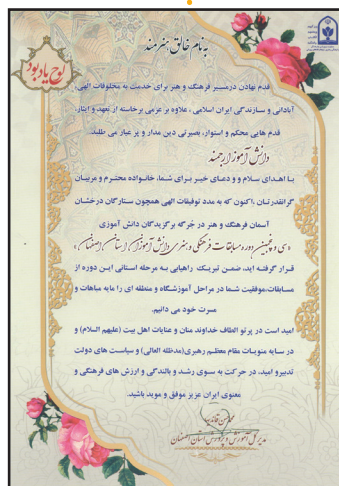 به نام خالق هنرمند
لوح یادبود
قدم نهادن در مسیر فرهنگ و هنر برای خدمت به مخلوقات الهی،
آبادانی و سازندگی ایران اسلامی ، علاوه بر عزمی برخاسته از تعهد و ایثار،
قدم هایی محکم و استوار، بصیرتی دین مدار و پر عیار می طلبد.
دانش آموز ارجمند
با اهدای سلام و و دعای خیر برای شما، خانواده محترم و مربیان
گرانقدرتان ،اکنون که به مدد توفیقات الهی همچون ستارگان درخشان
آسمان فرهنگ و هنر در جُرگه برگزیدگان دانش آموزی
« سی و پنجمین دوره مسابقات فرهنگی و هنری دانش آموزان استان اصفهان »
قرار گرفته اید، ضمن تبریک راهیابی به مرحله استانی این دوره از
مسابقات،موفقیت شما در مراحل آموزشگاه و منطقه ای را مایه مباهات و
مسرت خود می دانیم.
امید است در پرتو الطاف خداوند منان و عنایات اهل بیت (علیهم السلام) و
در سایه منویات مقام معظم رهبری(مدظله العالی) و سیاست های دولت
تدبیر و امید، در حرکت به سوی رشد و بالندگی و ارزش های فرهنگی و
معنوی ایران عزیز موفق و موید باشید.
محمد حسن قائدیها
مدیر کل آموزش و پرورش استان اصفهان